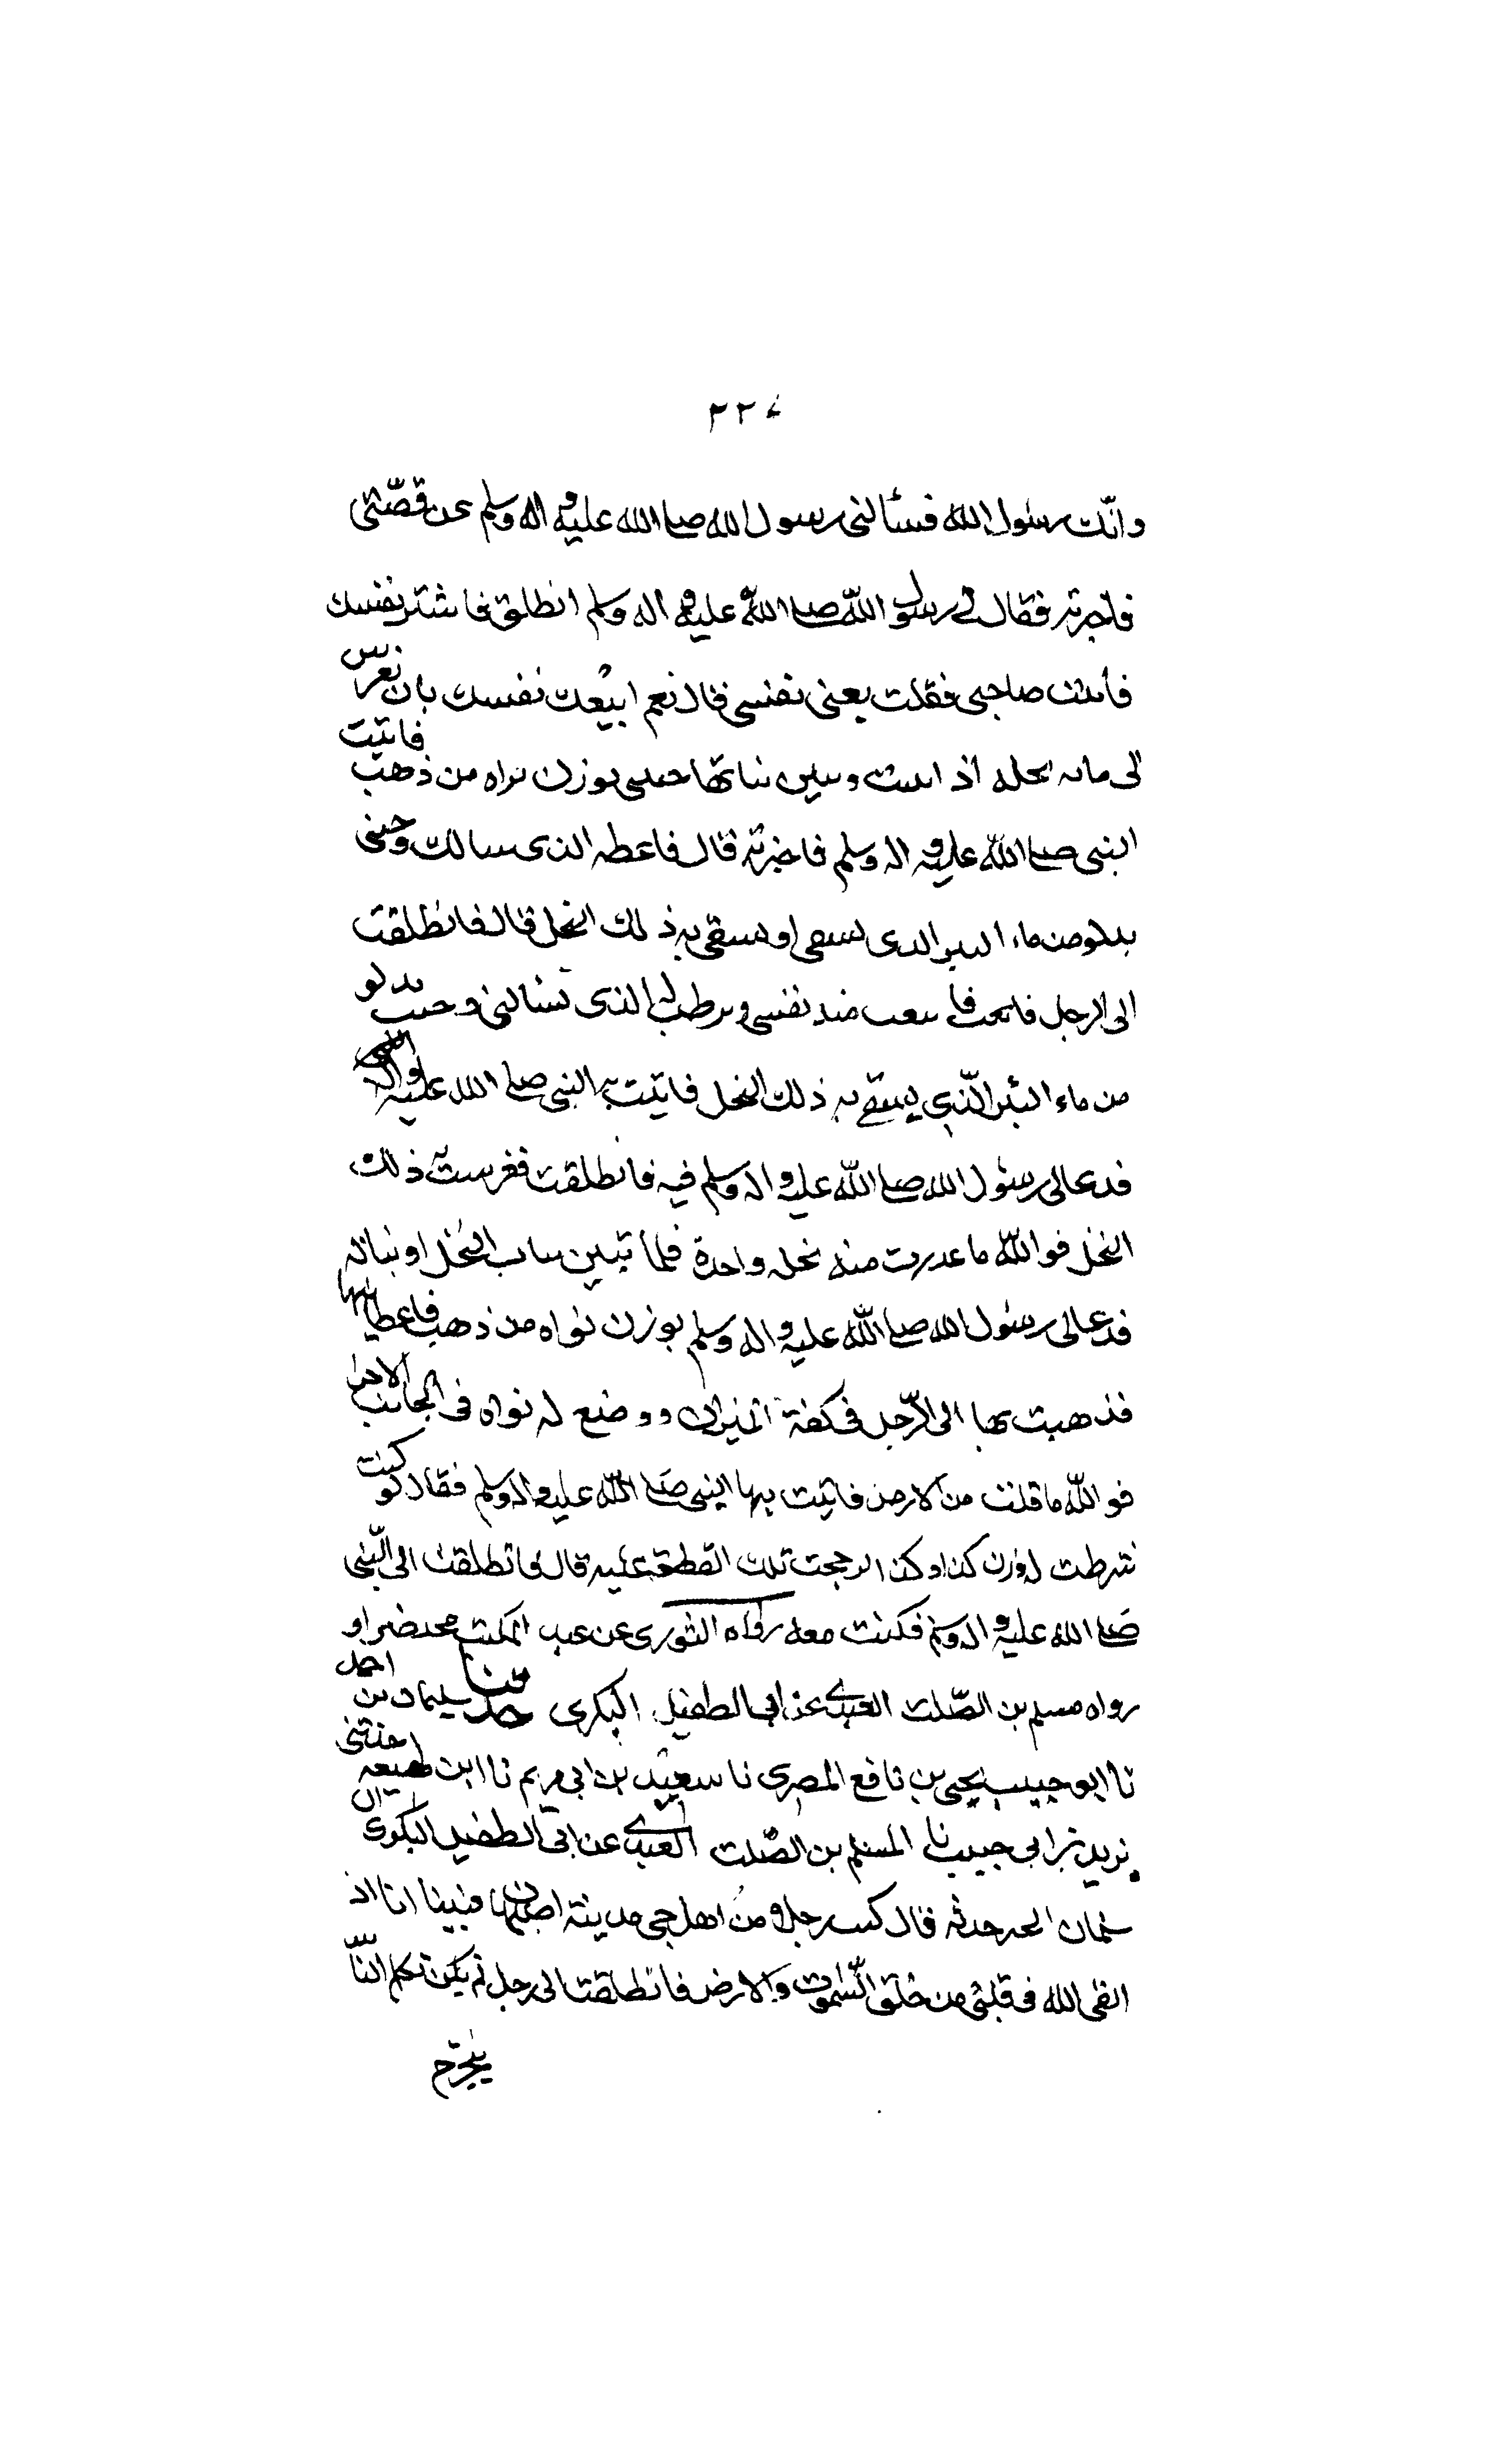 ٢٢٧
وانّك رسول الله فسألنى رسول الله صلى الله عليه و اله وسلم عن قصّتى
فاخبرته فقال لى رسول الله صلى الله عليه و اله وسلم انطلق فاشتر نفسك
فأتيت صاحبى فقلت بعنى نفسى قال نعم ابيعك نفسك بان تغرس
لى مائه نخله اذا نبتت وتبين نباتها جئتنى بوزن نواه من ذهب فاتيت
النبى صلى الله عليه و اله وسلم فاخبرته قال فاعطه الذى سالك وجئنى
بدلو من ماء البير الذى تسقى او يسقى به ذلك النخل قال فانطلقت
الى الرجل فابتعت منه نفسى وشرطت له الذى سالنى وجئت بدلو
من ماء البئر الّذي يسقى به ذلك النخل فاتيت به النبى صلى الله عليه واله
فدعا لى رسول الله صلى الله عليه و اله وسلم فيه فانطلقت فغرست به ذلك
النخل فو الله ما غدرت منه نخله واحدة فلما تبين نبات النخل او نباته
فدعا لى رسول الله صلى الله عليه و اله وسلم بوزن نواه من ذهب فاعطانيها
فذهبت بها الى الرّجل فى كفة الميزان ووضع له نواه فى الجانب الاخر
فو الله ما قلت من الارض فاتيت بها النبى صلى الله عليه واله وسلم فقال لو كنت
شرطت له وزن كذا وكذا لرجحت تلك القطعة عليه قال فانطلقت الى النّبى
صلى الله عليه و اله وسلم فكنت معه رواه الثورى عن عبيد المكتب مختصرا و
رواه مسلم بن الصّلت العبدي عن ابى الطفيل البكرى حدثنا سليمان بن احمد
نا ابو حبيب يحيى بن نافع المصرى نا سعيد بن ابى مريم نا ابن لهيعه اخبرنى
يزيد بن ابى حبيب نا المسلم بن الصّلت العبدي عن ابى الطفيل البكرى ان
سلمان الخير حدثه قال كنت رجلا من اهل جى مدينة اصبهان فبينا انا اذ
القى الله فى قلبى من خلق السّموات والارض فانطلقت الى رجل لم يكن يكلم النّاس
يتحرج